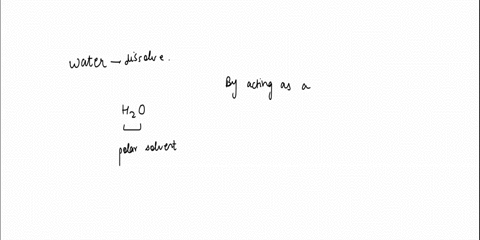 water — dissolve.
By acting as a
H₂O
polar solvent